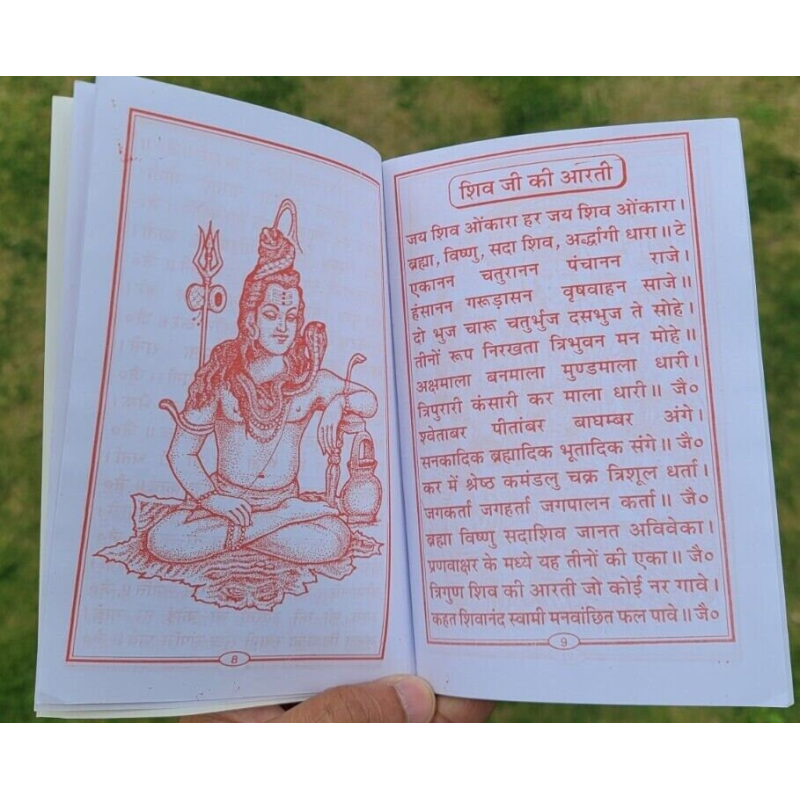 8
शिव जी की आरती
जय शिव ओंकारा हर जय शिव ओंकारा।
ब्रह्मा, विष्णु, सदा शिव, अर्द्धागी धारा॥ टे
एकानन चतुरानन पंचानन राजे।
हंसानन गरूड़ासन वृषवाहन साजे॥
दो भुज चारू चतुर्भुज दसभुज ते सोहे।
तीनों रूप निरखता त्रिभुवन मन मोहे॥
अक्षमाला बनमाला मुण्डमाला धारी।
त्रिपुरारी कंसारी कर माला धारी॥ जै०
श्वेताबर पीतांबर बाघम्बर अंगे।
सनकादिक ब्रह्मादिक भूतादिक संगे॥ जै०
कर में श्रेष्ठ कमंडलु चक्र त्रिशूल धर्ता।
जगकर्ता जगहर्ता जगपालन कर्ता॥ जै०
ब्रह्मा विष्णु सदाशिव जानत अविवेका।
प्रणवाक्षर के मध्ये यह तीनों की एका॥ जै०
त्रिगुण शिव की आरती जो कोई नर गावे।
कहत शिवानंद स्वामी मनवांछित फल पावे॥ जै०
9